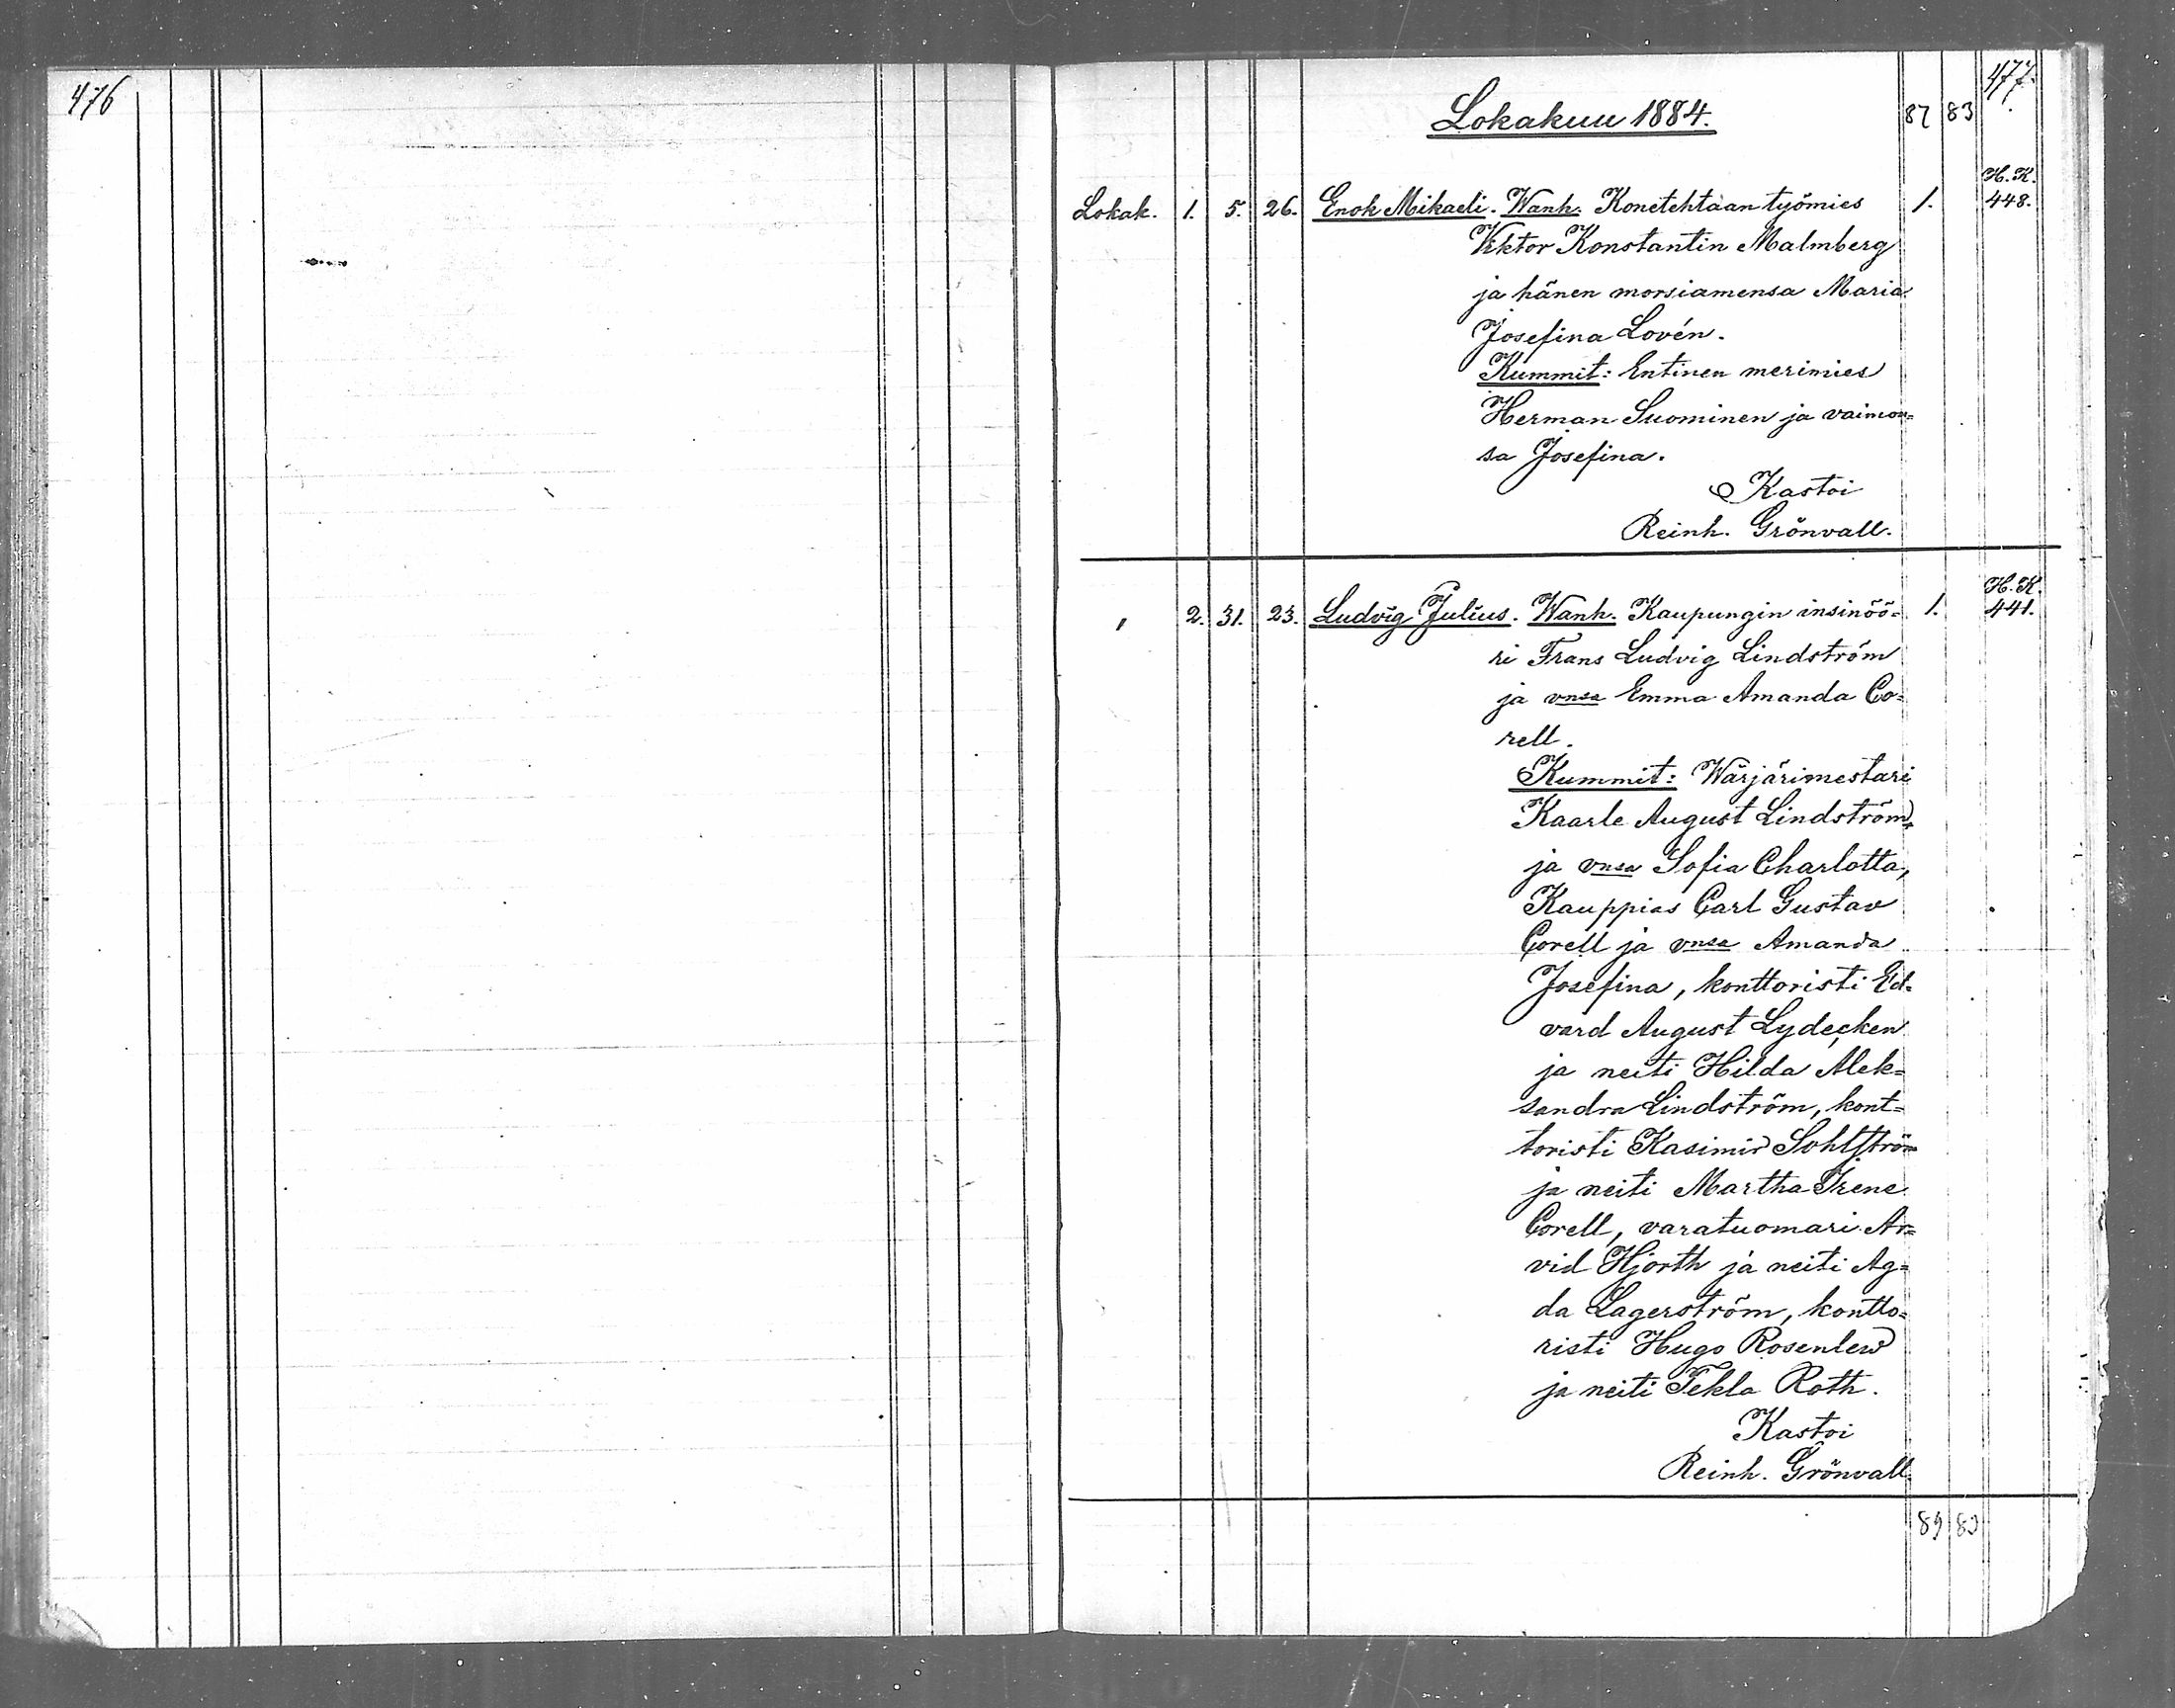 476
477.
Lokakuu 1884.
87 83
H. K.
Lokak. 1. 5. 26. Enok Mikaeli. Wanh. Konetehtaan työmies 1. 448.
Viktor Konstantin Malmberg
ja hänen morsiamensa Maria
Josefina Lovén.
Kummit: Entinen merimies
Herman Suominen ja vaimon=
sa Josefina.
Kastoi
Reinh. Grönvall.
H. K.
" 2. 31. 23. Ludvig Julius. Wanh. Kaupungin insinöö= 1. 441.
ri Frans Ludvig Lindström
ja vnsa Emma Amanda Co=
rell.
Kummit: Wärjärimestari
Kaarle August Lindström
ja vnsa Sofia Charlotta,
Kauppias Carl Gustav
Corell ja vnsa Amanda
Josefina, konttoristi Ed=
vard August Lydecken
ja neiti Hilda Alek=
sandra Lindström, kont=
toristi Kasimir Sohlström
ja neiti Martha Irene
Corell, varatuomari Ar=
vid Hjorth ja neiti Ag=
da Lagerström, kontto=
risti Hugo Rosenlew
ja neiti Tekla Roth.
Kastoi
Reinh. Grönvall.
89 83